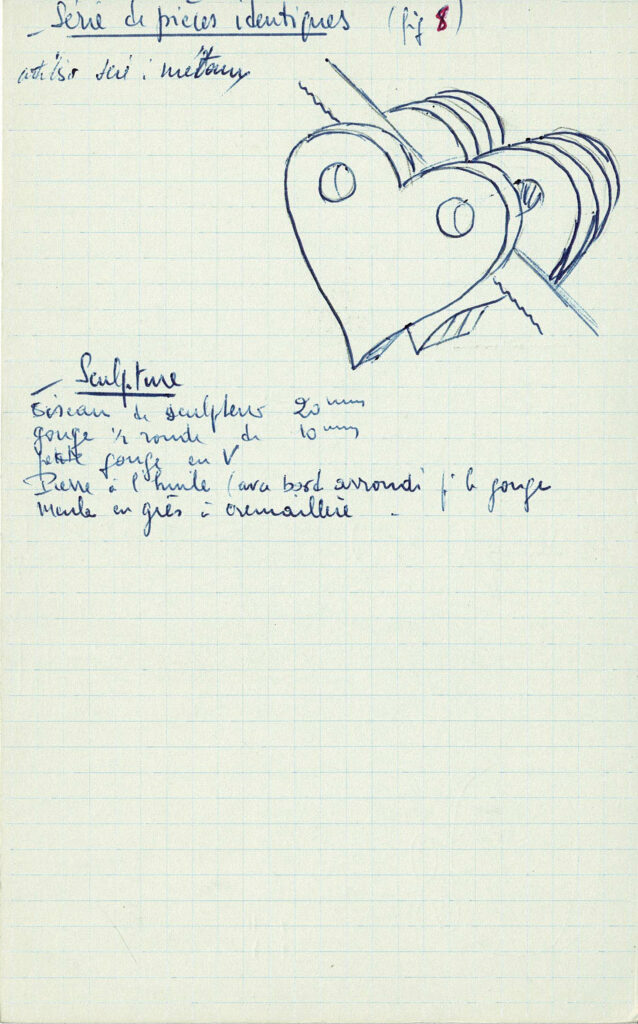 _ Série de pièces identiques (fig 8)
utiliser scie : métaux
_ Sculpture
ciseau de sculpteur 20 mm
gouge 1/2 ronde de 10 mm
petite gouge en V
Pierre à l'huile (avec bord arrondi pr la gouge
Meule en grès à crémaillère .